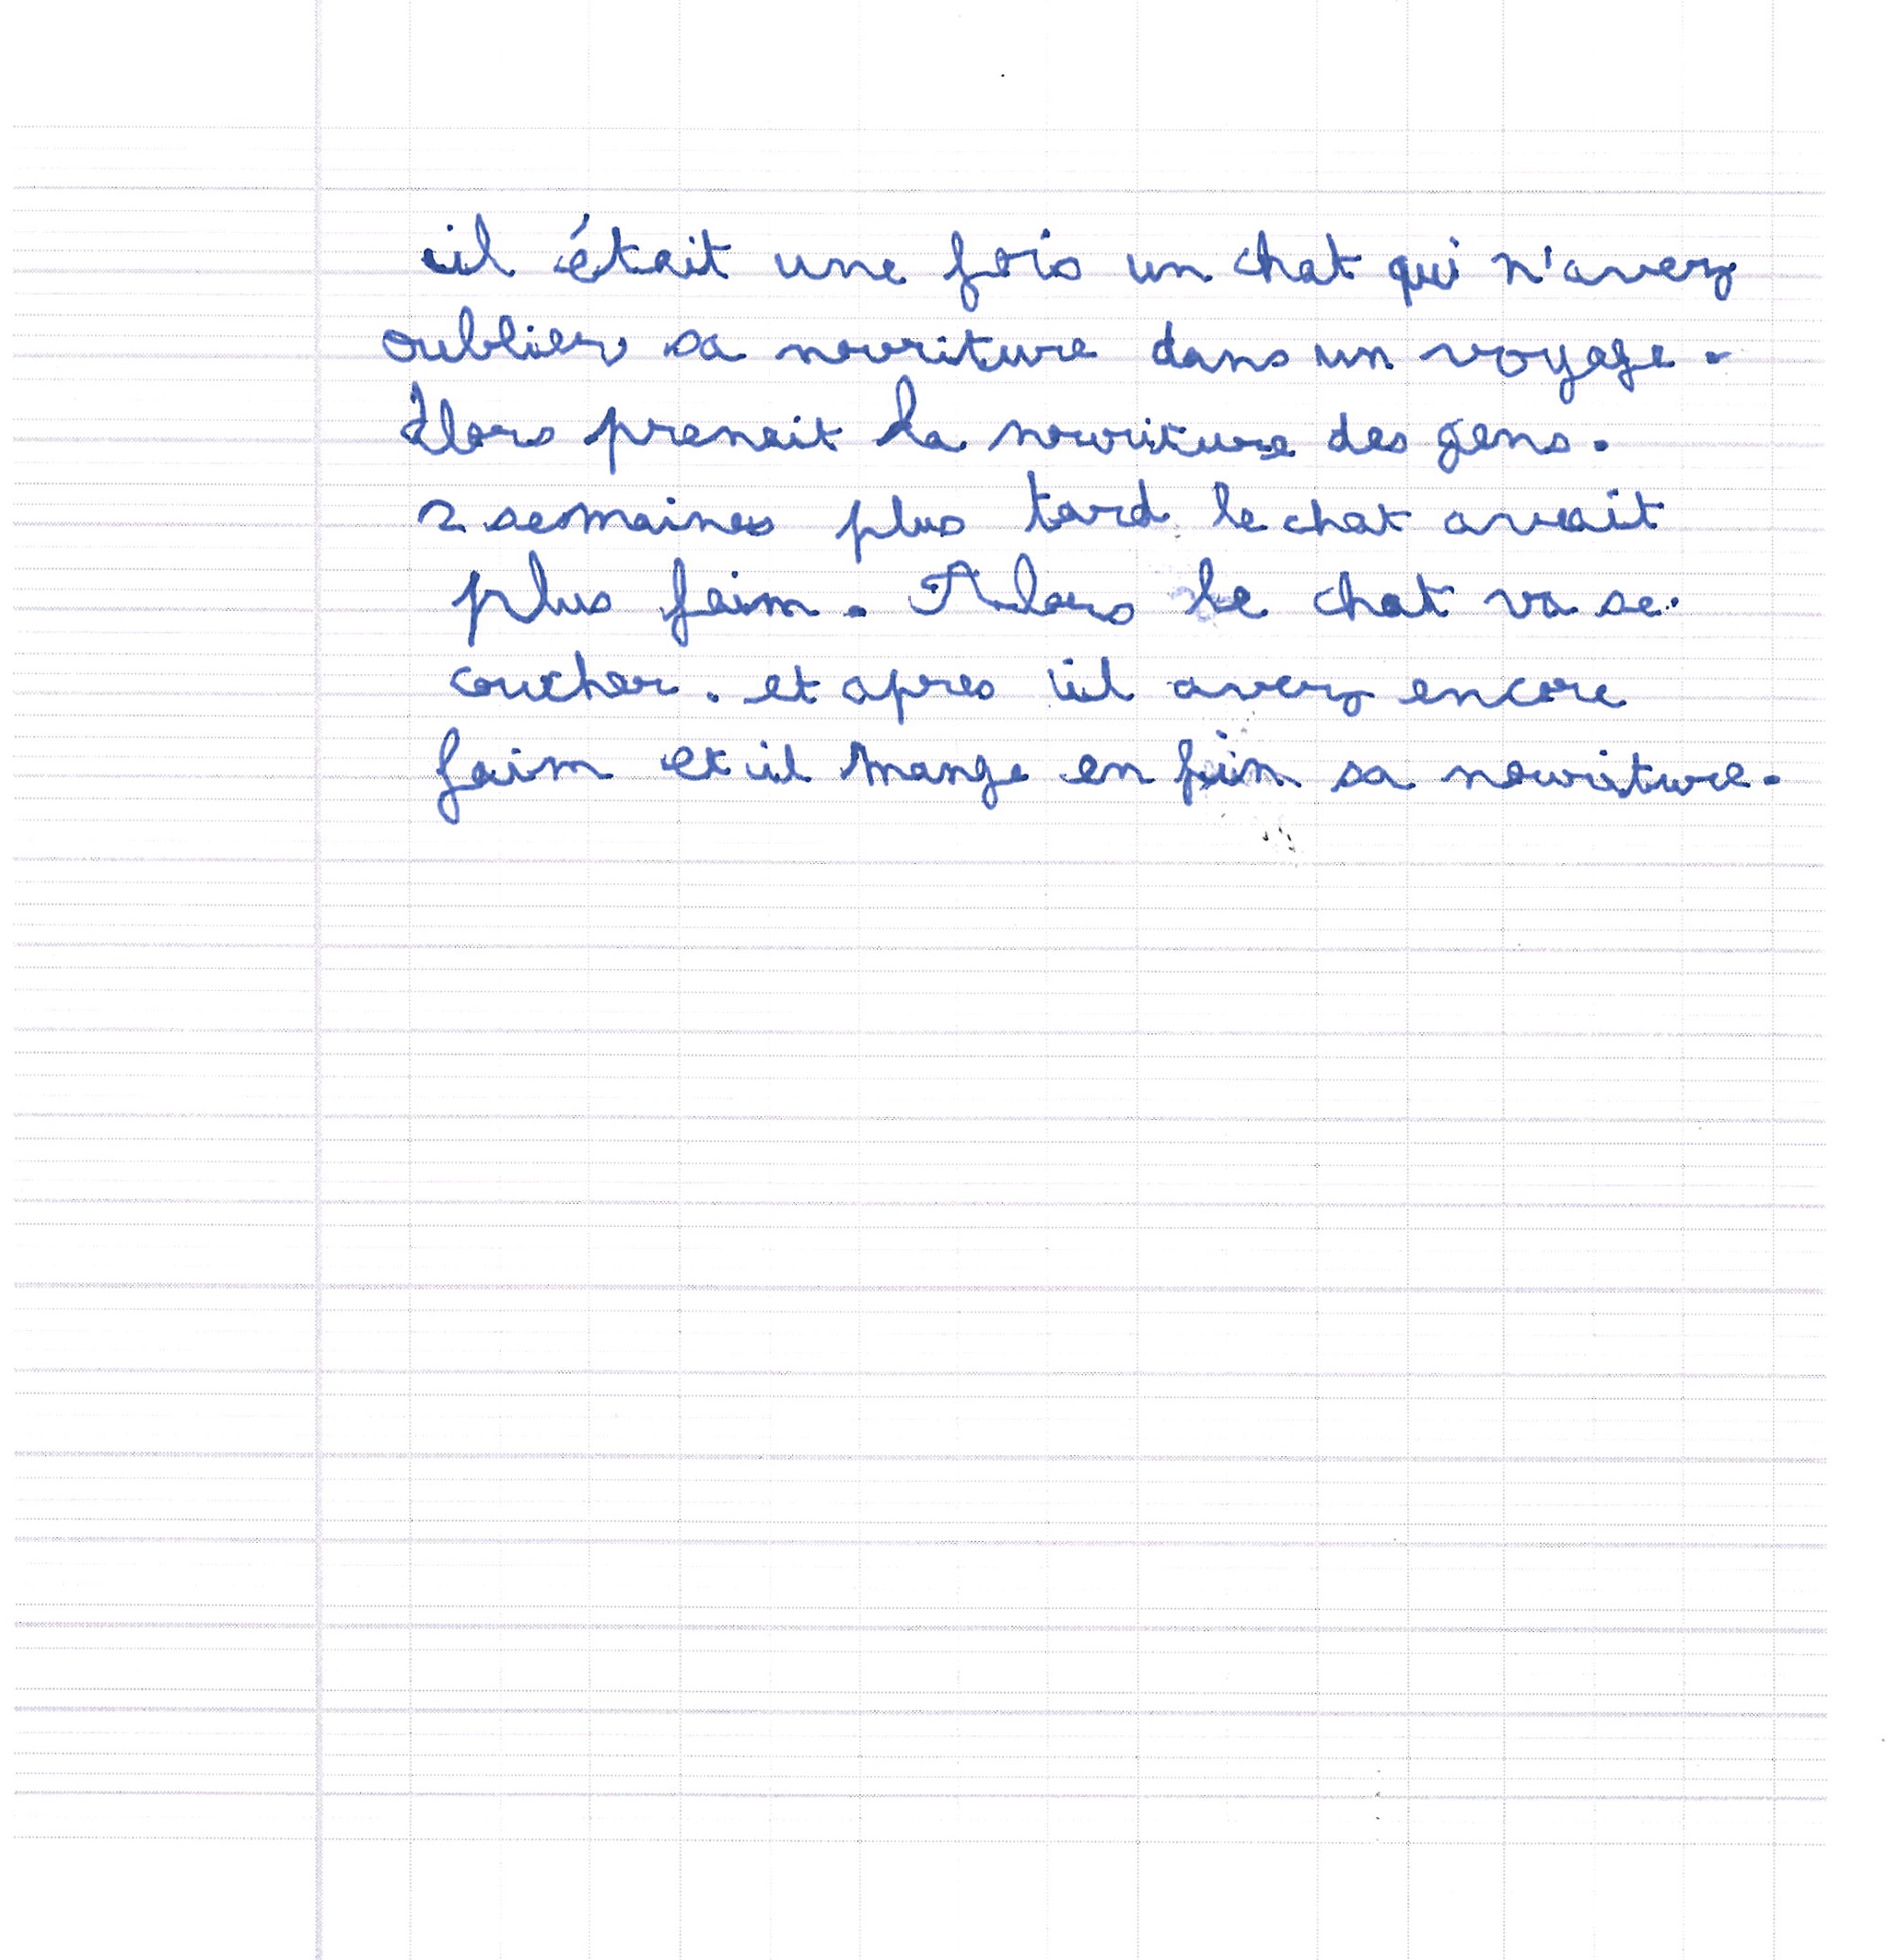 il était une fois un chat qui n'avez
oublier sa nouriture dans un voyage.
alors prenait la nouriture des gens.
2 semaines plus tard le chat avait
plus faim. Alors le chat va se
coucher. et apres il avez encore
faim et il mange en fin sa nouriture.